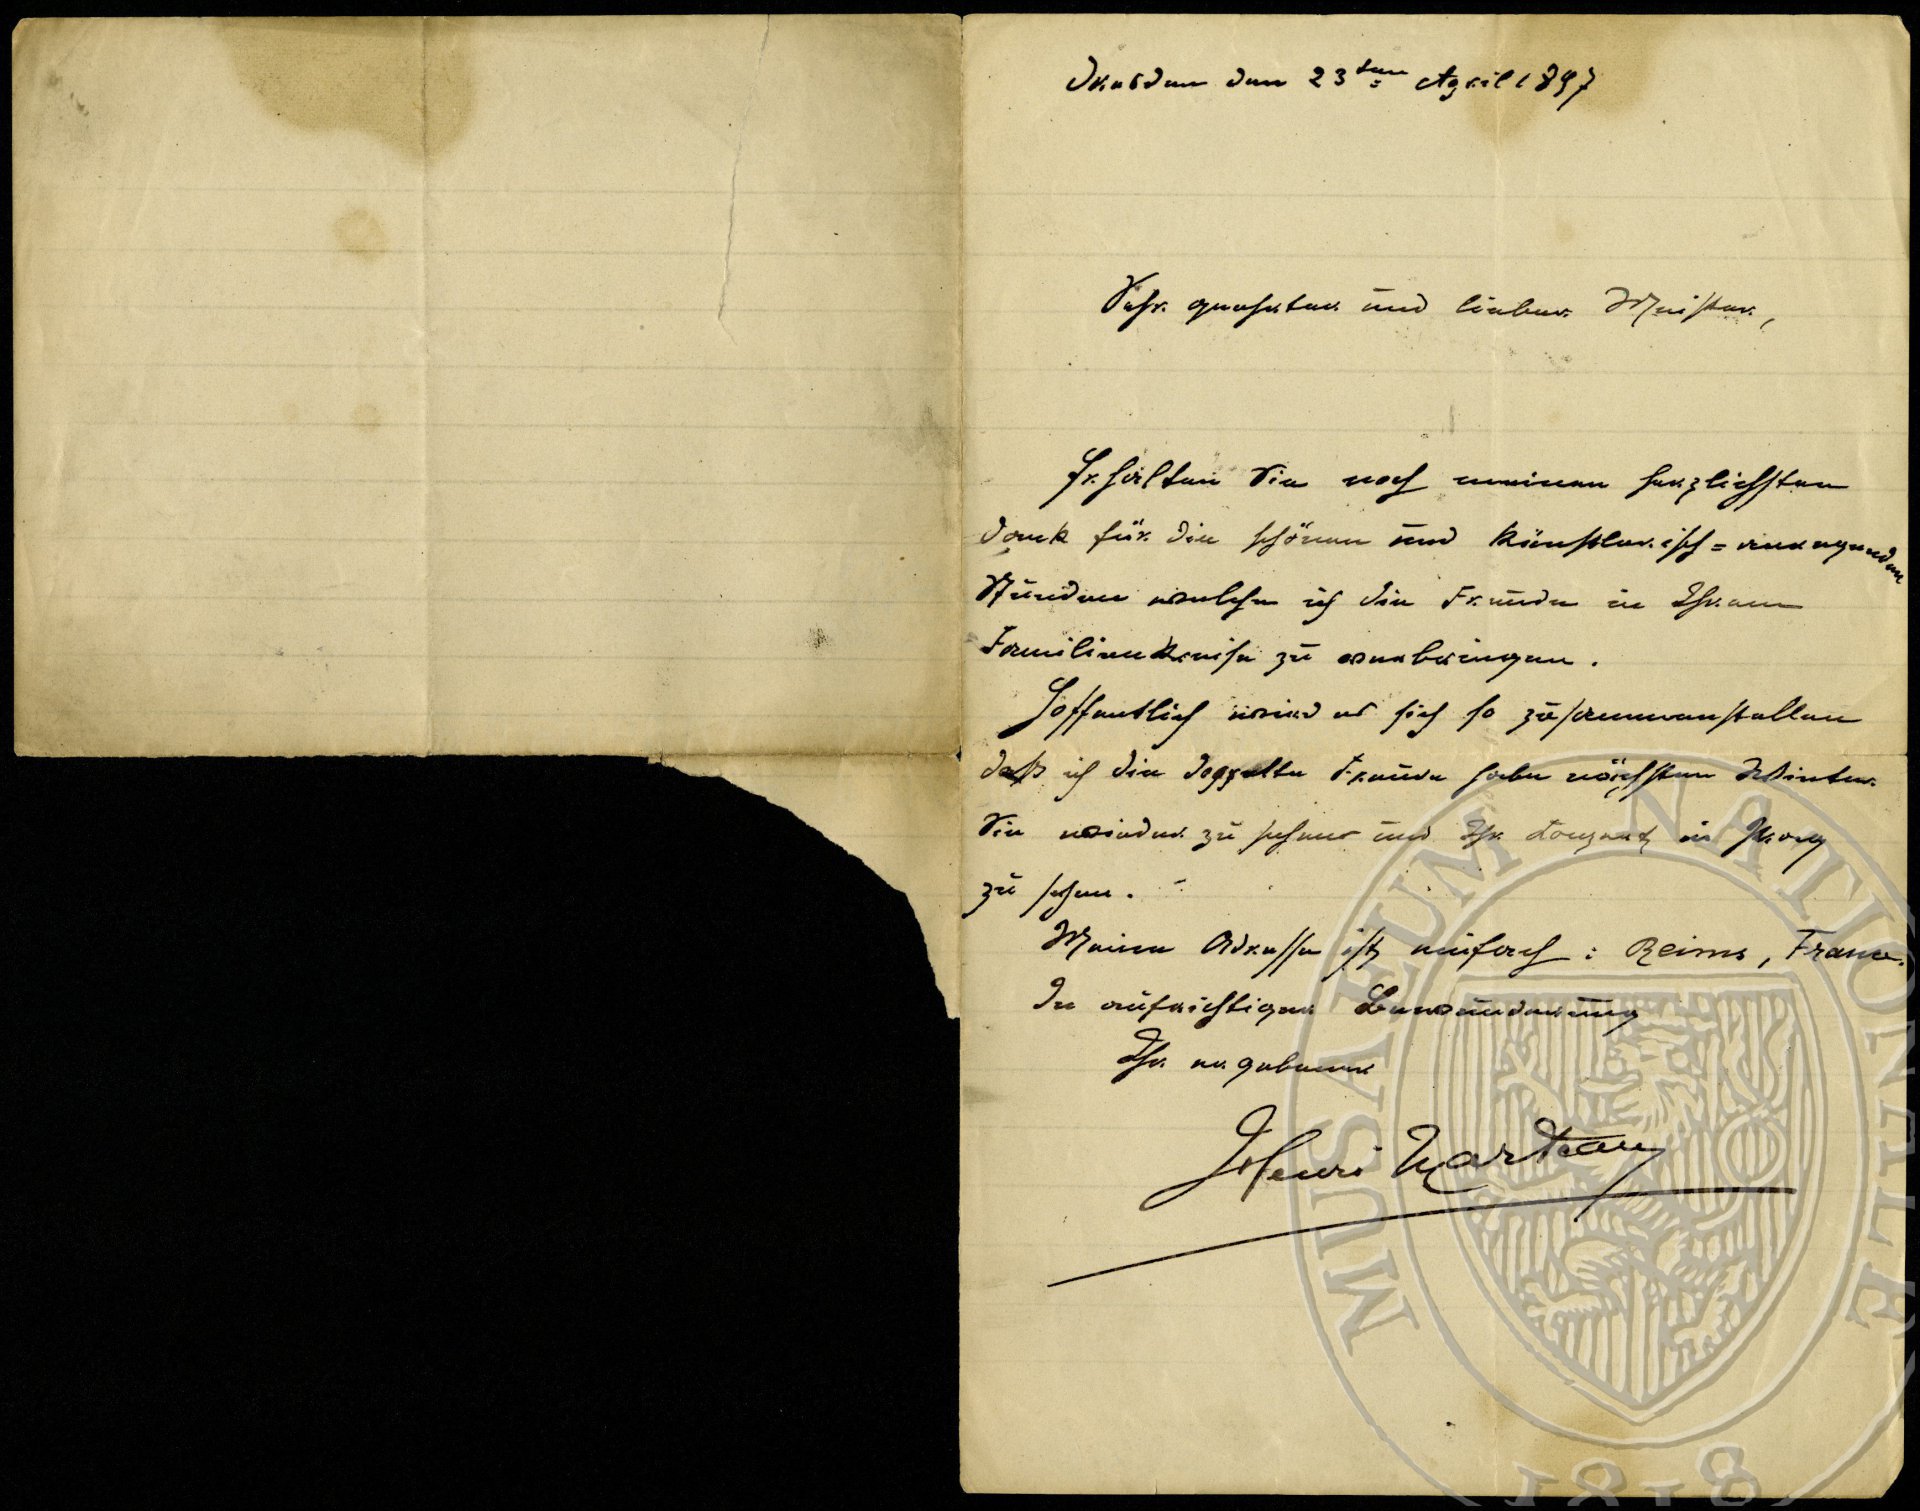 Dresden den 23ten April 1897
Sehr geehrter und lieber Meister,
Erhalten Sie noch meinen herzlichsten
Dank für die schönen und künstlerisch = anregenden
Stunden welche ich die Freude in Ihrem
Familienkreise zu verbringen.
Hoffentlich wird es sich so zusammenstellen
daß ich die doppelte Freude habe nächsten Winter
Sie wieder zu sehen und Ihr Conzert in Prag
zu sehen.
Meine Adresse ist einfach : Reims, France.
In aufrichtiger Bewunderung
Ihr ergebener
Henri Marteau
MUSAEUM NATIONALE
1818